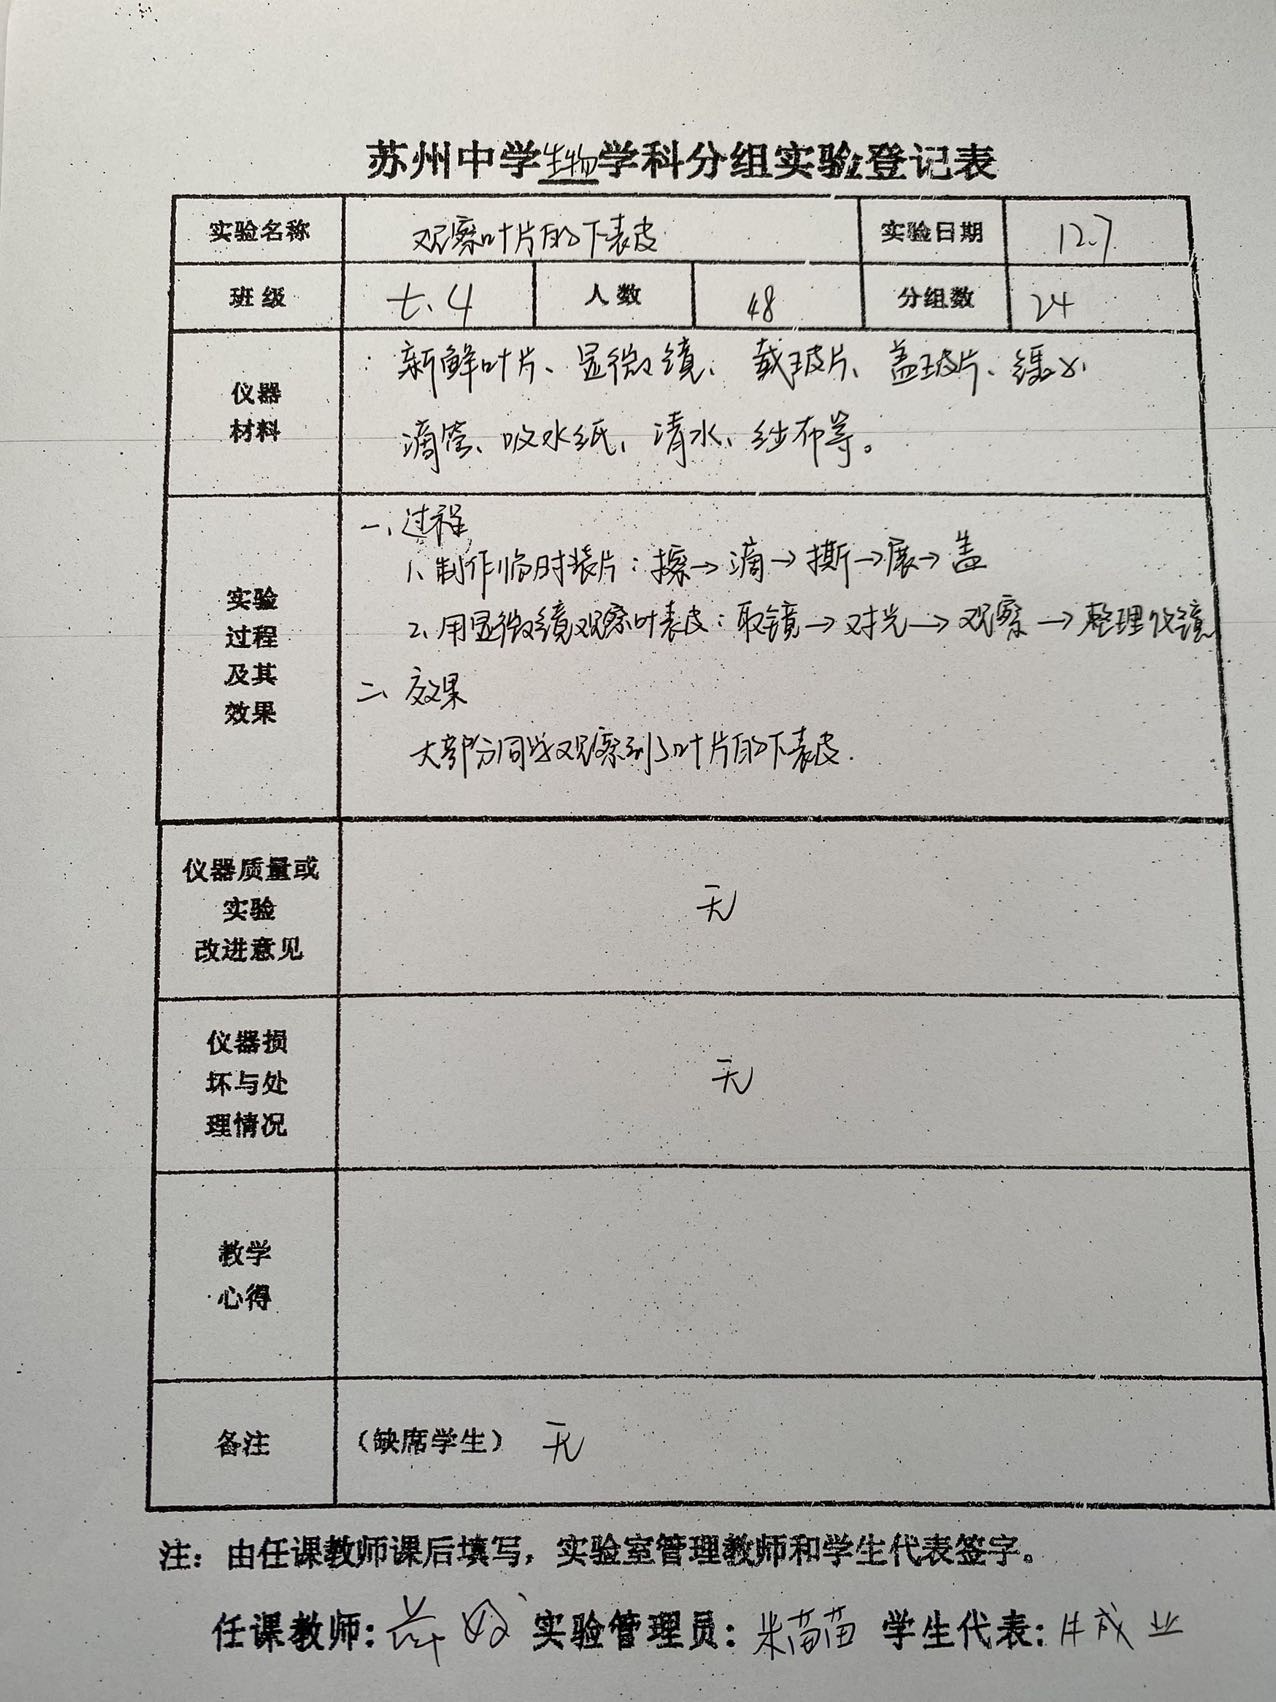 苏州中学生物学科分组实验登记表
实验名称 观察叶片的下表皮 实验日期 12.7
班级 七.4 人数 48 分组数 24
仪器材料
新鲜叶片、显微镜、载玻片、盖玻片、镊子、
滴管、吸水纸、清水、纱布等。
实验过程及其效果
一、过程
1、制作临时装片：擦→滴→撕→展→盖
2、用显微镜观察叶表皮：取镜→对光→观察→整理收镜
二、效果
大部分同学观察到了叶片的下表皮.
仪器质量或实验改进意见 无
仪器损坏与处理情况 无
教学心得
备注 （缺席学生） 无
注：由任课教师课后填写，实验室管理教师和学生代表签字。
任课教师: 实验管理员: 米苗苗 学生代表: 成业